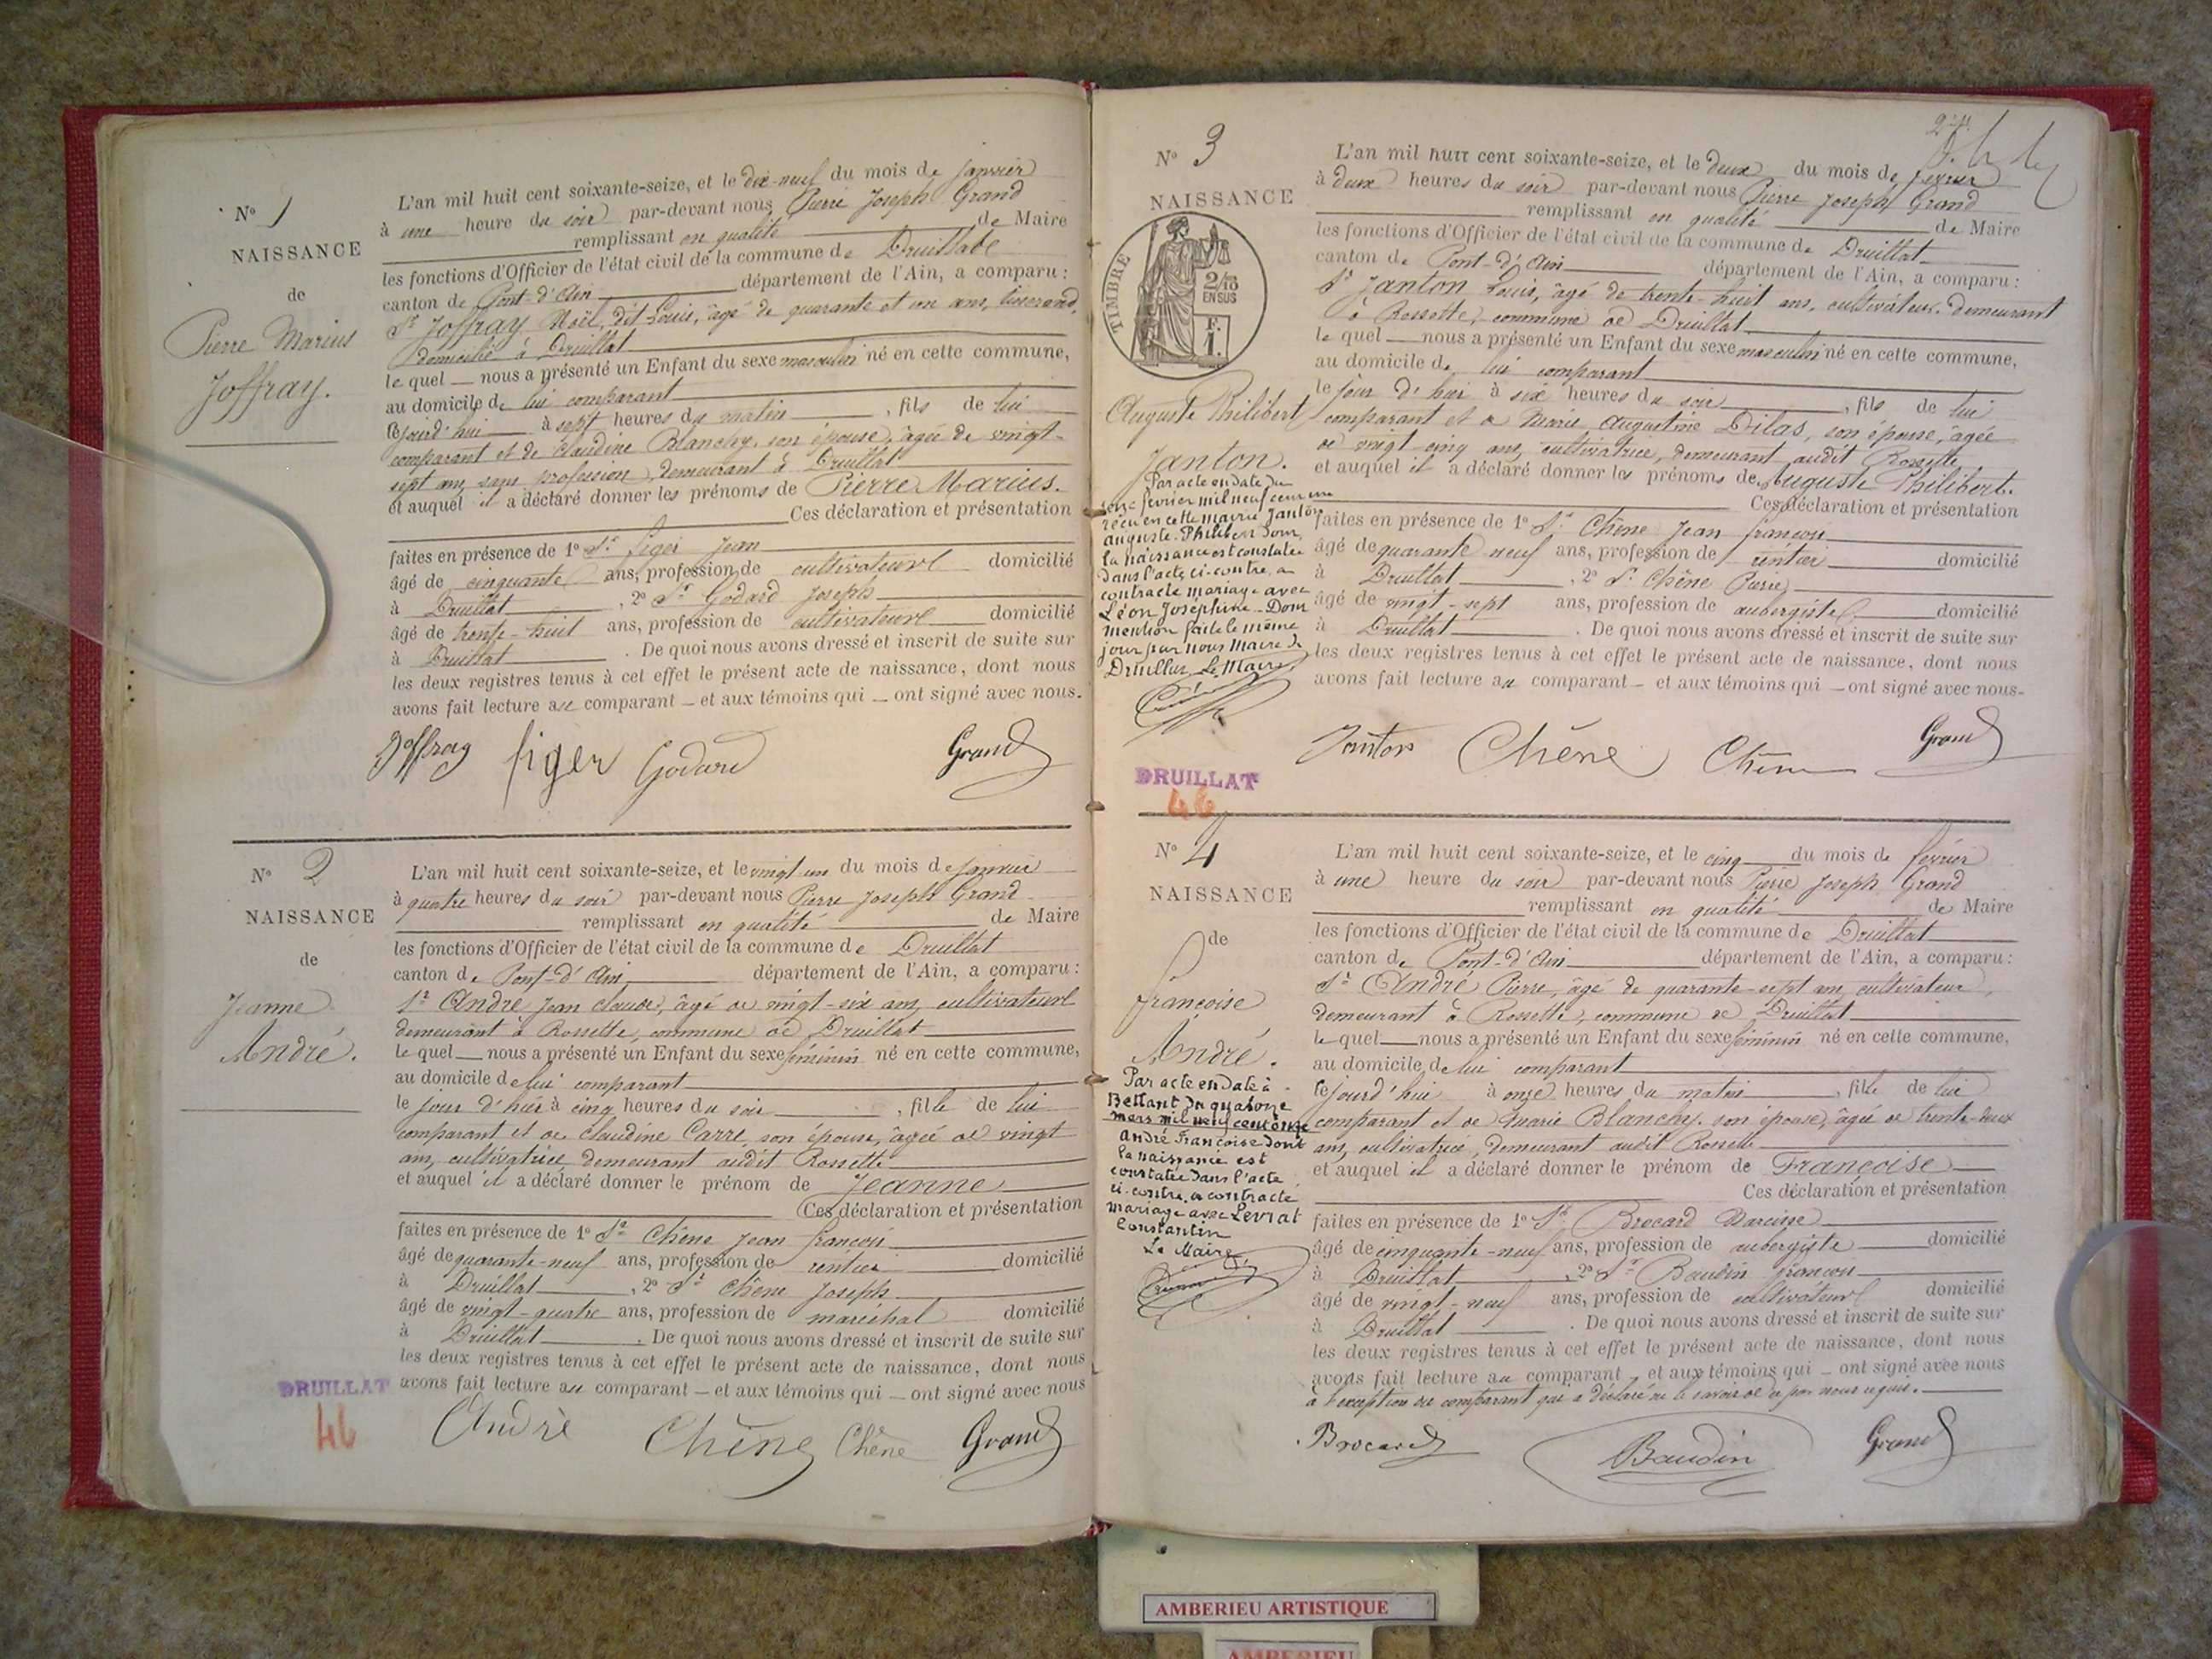 N° 1
NAISSANCE
de
Pierre Marius
Joffray.
L'an mil huit cent soixante-seize, et le dix-neuf du mois de janvier
à une heure du soir par-devant nous Pierre Joseph Grand
remplissant en qualité de Maire
les fonctions d'Officier de l'état civil de la commune de Druillat
canton de Pont-d'Ain département de l'Ain, a comparu :
Sr Joffray Noël, dit Louis, âgé de quarante et un ans, tisserand,
domicilié à Druillat
le quel nous a présenté un Enfant du sexe masculin né en cette commune,
au domicile de lui comparant
cejourd'hui à sept heures du matin, fils de lui
comparant et de Claudine Blanchy, son épouse, âgée de vingt-
sept ans, sans profession, demeurant à Druillat
et auquel il a déclaré donner les prénoms de Pierre Marius.
Ces déclaration et présentation
faites en présence de 1° Sr figer Jean
âgé de cinquante ans, profession de cultivateur domicilié
à Druillat, 2° Sr Godard Joseph
âgé de trente-huit ans, profession de cultivateur domicilié
à Druillat. De quoi nous avons dressé et inscrit de suite sur
les deux registres tenus à cet effet le présent acte de naissance, dont nous
avons fait lecture au comparant _ et aux témoins qui _ ont signé avec nous.
Joffray figer Godard Grand
N° 2
NAISSANCE
de
Jeanne
André.
L'an mil huit cent soixante-seize, et le vingt un du mois de janvier
à quatre heures du soir par-devant nous Pierre Joseph Grand
remplissant en qualité de Maire
les fonctions d'Officier de l'état civil de la commune de Druillat
canton de Pont-d'Ain département de l'Ain, a comparu :
Sr André Jean Claude, âgé de vingt-six ans, cultivateur
demeurant à Rossette, commune de Druillat
le quel nous a présenté un Enfant du sexe féminin né en cette commune,
au domicile de lui comparant
le jour d'hier à cinq heures du soir, fille de lui
comparant et de Claudine Carre, son épouse, âgée de vingt
ans, cultivatrice, demeurant audit Rossette
et auquel il a déclaré donner le prénom de Jeanne
Ces déclaration et présentation
faites en présence de 1° Sr Chêne Jean françois
âgé de quarante-neuf ans, profession de rentier domicilié
à Druillat, 2° Sr Chêne Joseph
âgé de vingt-quatre ans, profession de maréchal domicilié
à Druillat. De quoi nous avons dressé et inscrit de suite sur
les deux registres tenus à cet effet le présent acte de naissance, dont nous
avons fait lecture au comparant _ et aux témoins qui _ ont signé avec nous
DRUILLAT
46
André Chêne Chêne Grand
N° 3
NAISSANCE
TIMBRE
2/10
EN SUS
F.
1.
Auguste Philibert
Janton.
Par acte en date du
seize fevrier mil neuf cent un
reçu en cette mairie Janton
auguste Philibert dont
la naissance est constatée
dans l'acte ci-contre, a
contracté mariage avec
Léon Josephine. Dont
mention faite le même
jour par nous Maire de
Druillat. Le Maire,
L'an mil huit cent soixante-seize, et le deux du mois de février
à deux heures du soir par-devant nous Pierre Joseph Grand
remplissant en qualité de Maire
les fonctions d'Officier de l'état civil de la commune de Druillat
canton de Pont-d'Ain département de l'Ain, a comparu :
Sr Janton Louis, âgé de trente-huit ans, cultivateur, demeurant
à Rossette, commune de Druillat
le quel nous a présenté un Enfant du sexe masculin né en cette commune,
au domicile de lui comparant
le jour d'hier à six heures du soir, fils de lui
comparant et de Marie Augustine Dilas, son épouse, âgée
de vingt cinq ans, cultivatrice, demeurant audit Rossette
et auquel il a déclaré donner les prénoms de Auguste Philibert.
Ces déclaration et présentation
faites en présence de 1° Sr Chêne Jean françois
âgé de quarante neuf ans, profession de rentier domicilié
à Druillat, 2° Sr Chêne Pierre
âgé de vingt-sept ans, profession de aubergiste domicilié
à Druillat. De quoi nous avons dressé et inscrit de suite sur
les deux registres tenus à cet effet le présent acte de naissance, dont nous
avons fait lecture au comparant _ et aux témoins qui _ ont signé avec nous.
Janton Chêne Chêne Grand
DRUILLAT
46
N° 4
NAISSANCE
de
françoise
André.
Par acte en date à
Bettant du quatorze
mars mil neuf cent onze
André Françoise dont
la naissance est
constatée dans l'acte
ci-contre, a contracté
mariage avec Levrat
Constantin
Le Maire
L'an mil huit cent soixante-seize, et le cinq du mois de février
à une heure du soir par-devant nous Pierre Joseph Grand
remplissant en qualité de Maire
les fonctions d'Officier de l'état civil de la commune de Druillat
canton de Pont-d'Ain département de l'Ain, a comparu :
Sr André Pierre, âgé de quarante-sept ans, cultivateur,
demeurant à Rossette, commune de Druillat
le quel nous a présenté un Enfant du sexe féminin né en cette commune,
au domicile de lui comparant
cejourd'hui à onze heures du matin, fille de lui
comparant et de Marie Blanchy, son épouse, âgée de trente-deux
ans, cultivatrice, demeurant audit Rossette
et auquel il a déclaré donner le prénom de Françoise
Ces déclaration et présentation
faites en présence de 1° Sr Brocard Narcisse
âgé de cinquante-neuf ans, profession de aubergiste domicilié
à Druillat, 2° Sr Baudin françois
âgé de vingt-neuf ans, profession de cultivateur domicilié
à Druillat. De quoi nous avons dressé et inscrit de suite sur
les deux registres tenus à cet effet le présent acte de naissance, dont nous
avons fait lecture au comparant, et aux témoins qui _ ont signé avec nous
à l'exception du comparant qui a déclaré ne le savoir de ce par nous requis.
Brocard Baudin Grand
AMBERIEU ARTISTIQUE
AMBERIEU